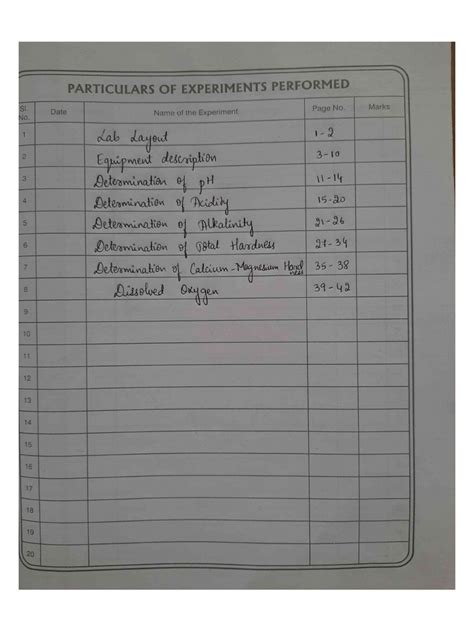 PARTICULARS OF EXPERIMENTS PERFORMED
Sl No. Date Name of the Experiment Page No. Marks
1 Lab Layout 1-2
2 Equipment description 3-10
3 Determination of pH 11-14
4 Determination of Acidity 15-20
5 Determination of Alkalinity 21-26
6 Determination of Total Hardness 27-34
7 Determination of Calcium-Magnesium Hardness 35-38
8 Dissolved Oxygen 39-42
9
10
11
12
13
14
15
16
17
18
19
20